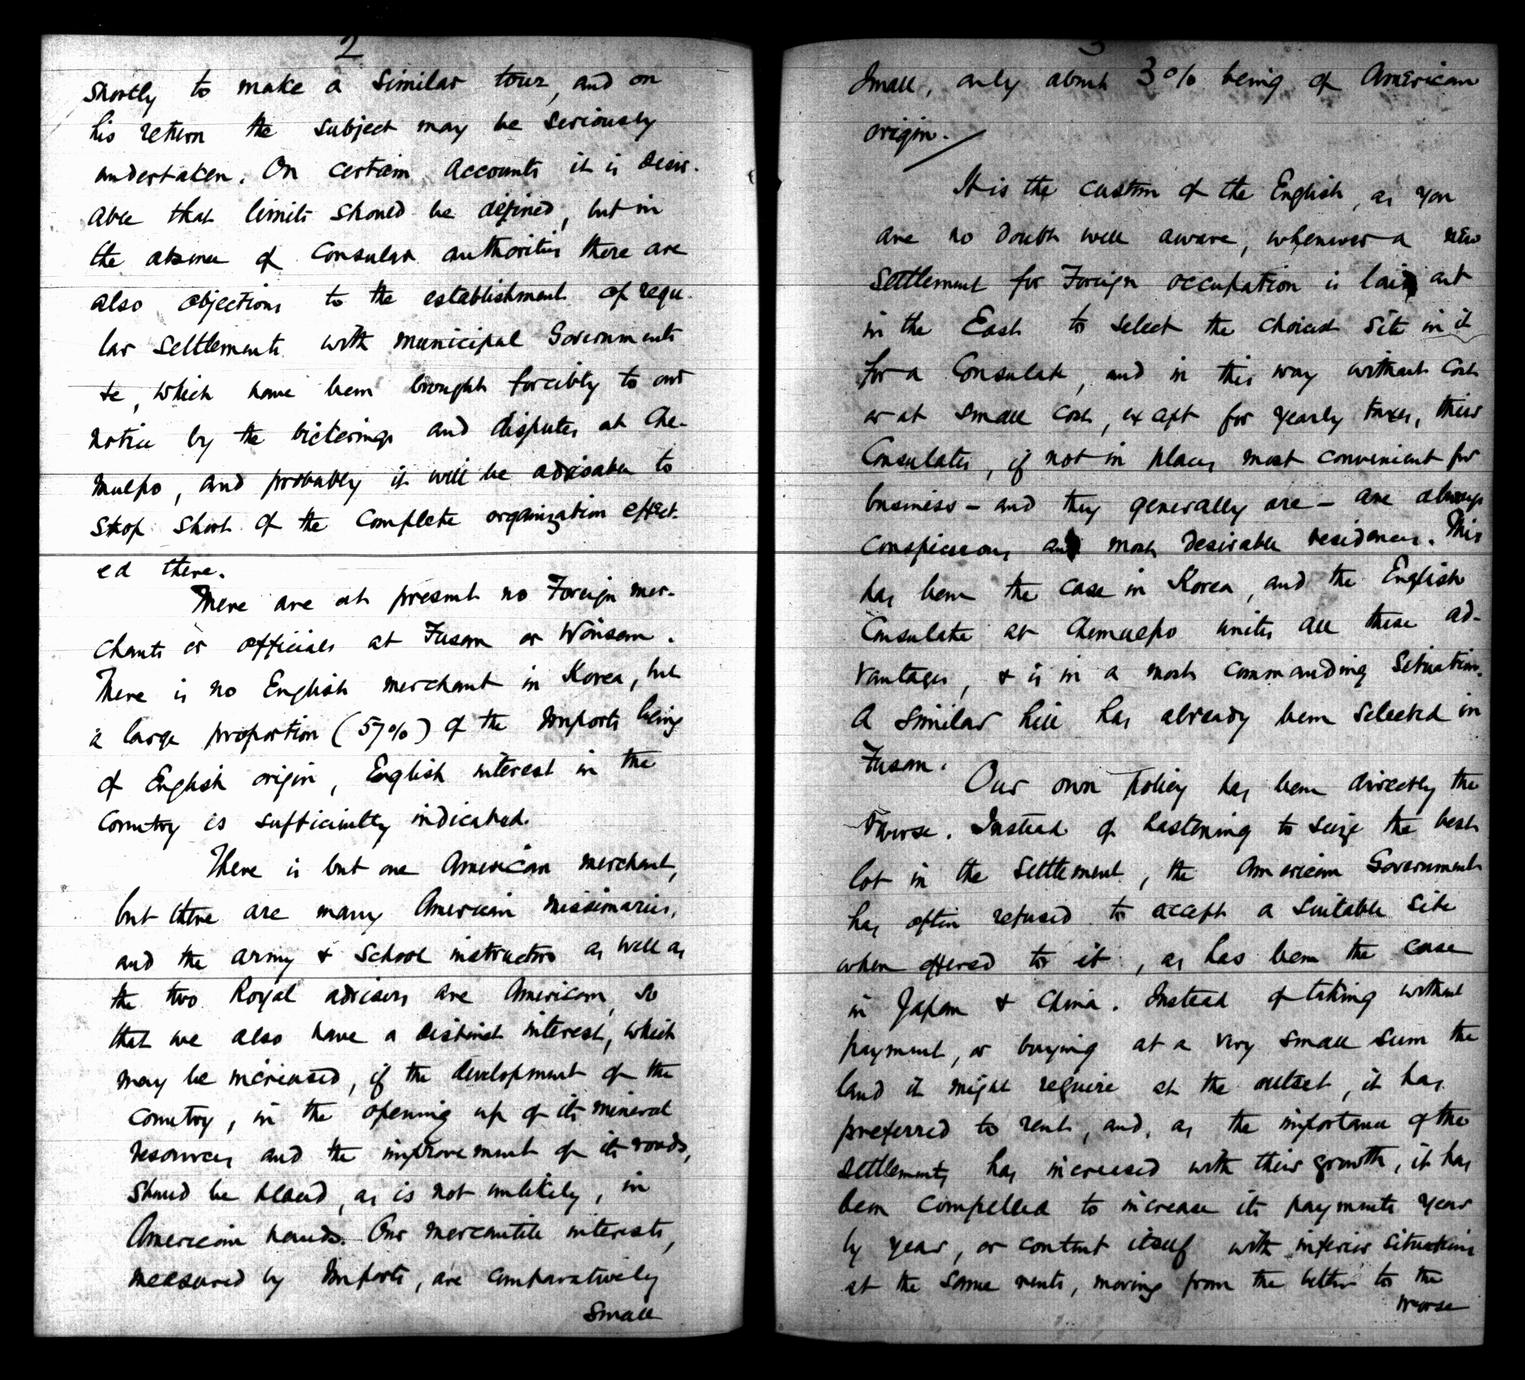 2
shortly to make a similar tour, and on
his return the subject may be seriously
undertaken. On certain accounts it is desir-
able that limits should be defined, but in
the absence of Consular authorities there are
also objections to the establishment of regu-
lar settlements with municipal Governments
&c, which have been brought forcibly to our
notice by the bickerings and disputes at Che-
mulpo, and probably it will be advisable to
stop short of the complete organization effect-
ed there.
There are at present no Foreign mer-
chants or officials at Fusan or Wonsan.
There is no English merchant in Korea, but
a large proportion (57%) of the Imports being
of English origin, English interest in the
Country is sufficiently indicated.
There is but one American merchant,
but there are many American missionaries,
and the army & School instructors as well as
the two Royal advisers are American, so
that we also have a distinct interest, which
may be increased, if the development of the
country, in the opening up of its mineral
resources and the improvement of its roads,
should be placed, as is not unlikely, in
American hands. Our mercantile interests,
measured by Imports, are comparatively
small
3
Small, only about 3% being of American
origin.
It is the custom of the English, as you
are no doubt well aware, whenever a new
Settlement for Foreign occupation is laid out
in the East to select the choicest site in it
for a Consulate, and in this way without cost
or at small cost, except for yearly taxes, their
Consulates, if not in places most convenient for
business - and they generally are - are always
conspicuous and most desirable residences. This
has been the case in Korea, and the English
Consulate at Chemulpo unites all these ad-
vantages, & is in a most commanding situation.
A similar hill has already been selected in
Fusan.
Our own policy has been directly the
reverse. Instead of hastening to seize the best
lot in the settlement, the American Government
has often refused to accept a suitable site
when offered to it, as has been the case
in Japan & China. Instead of taking without
payment, or buying at a very small sum the
land it might require at the outset, it has
preferred to rent, and, as the importance of the
settlements has increased with their growth, it has
been compelled to increase its payments year
by year, or content itself with inferior situations
at the same rents, moving from the better to the
worse